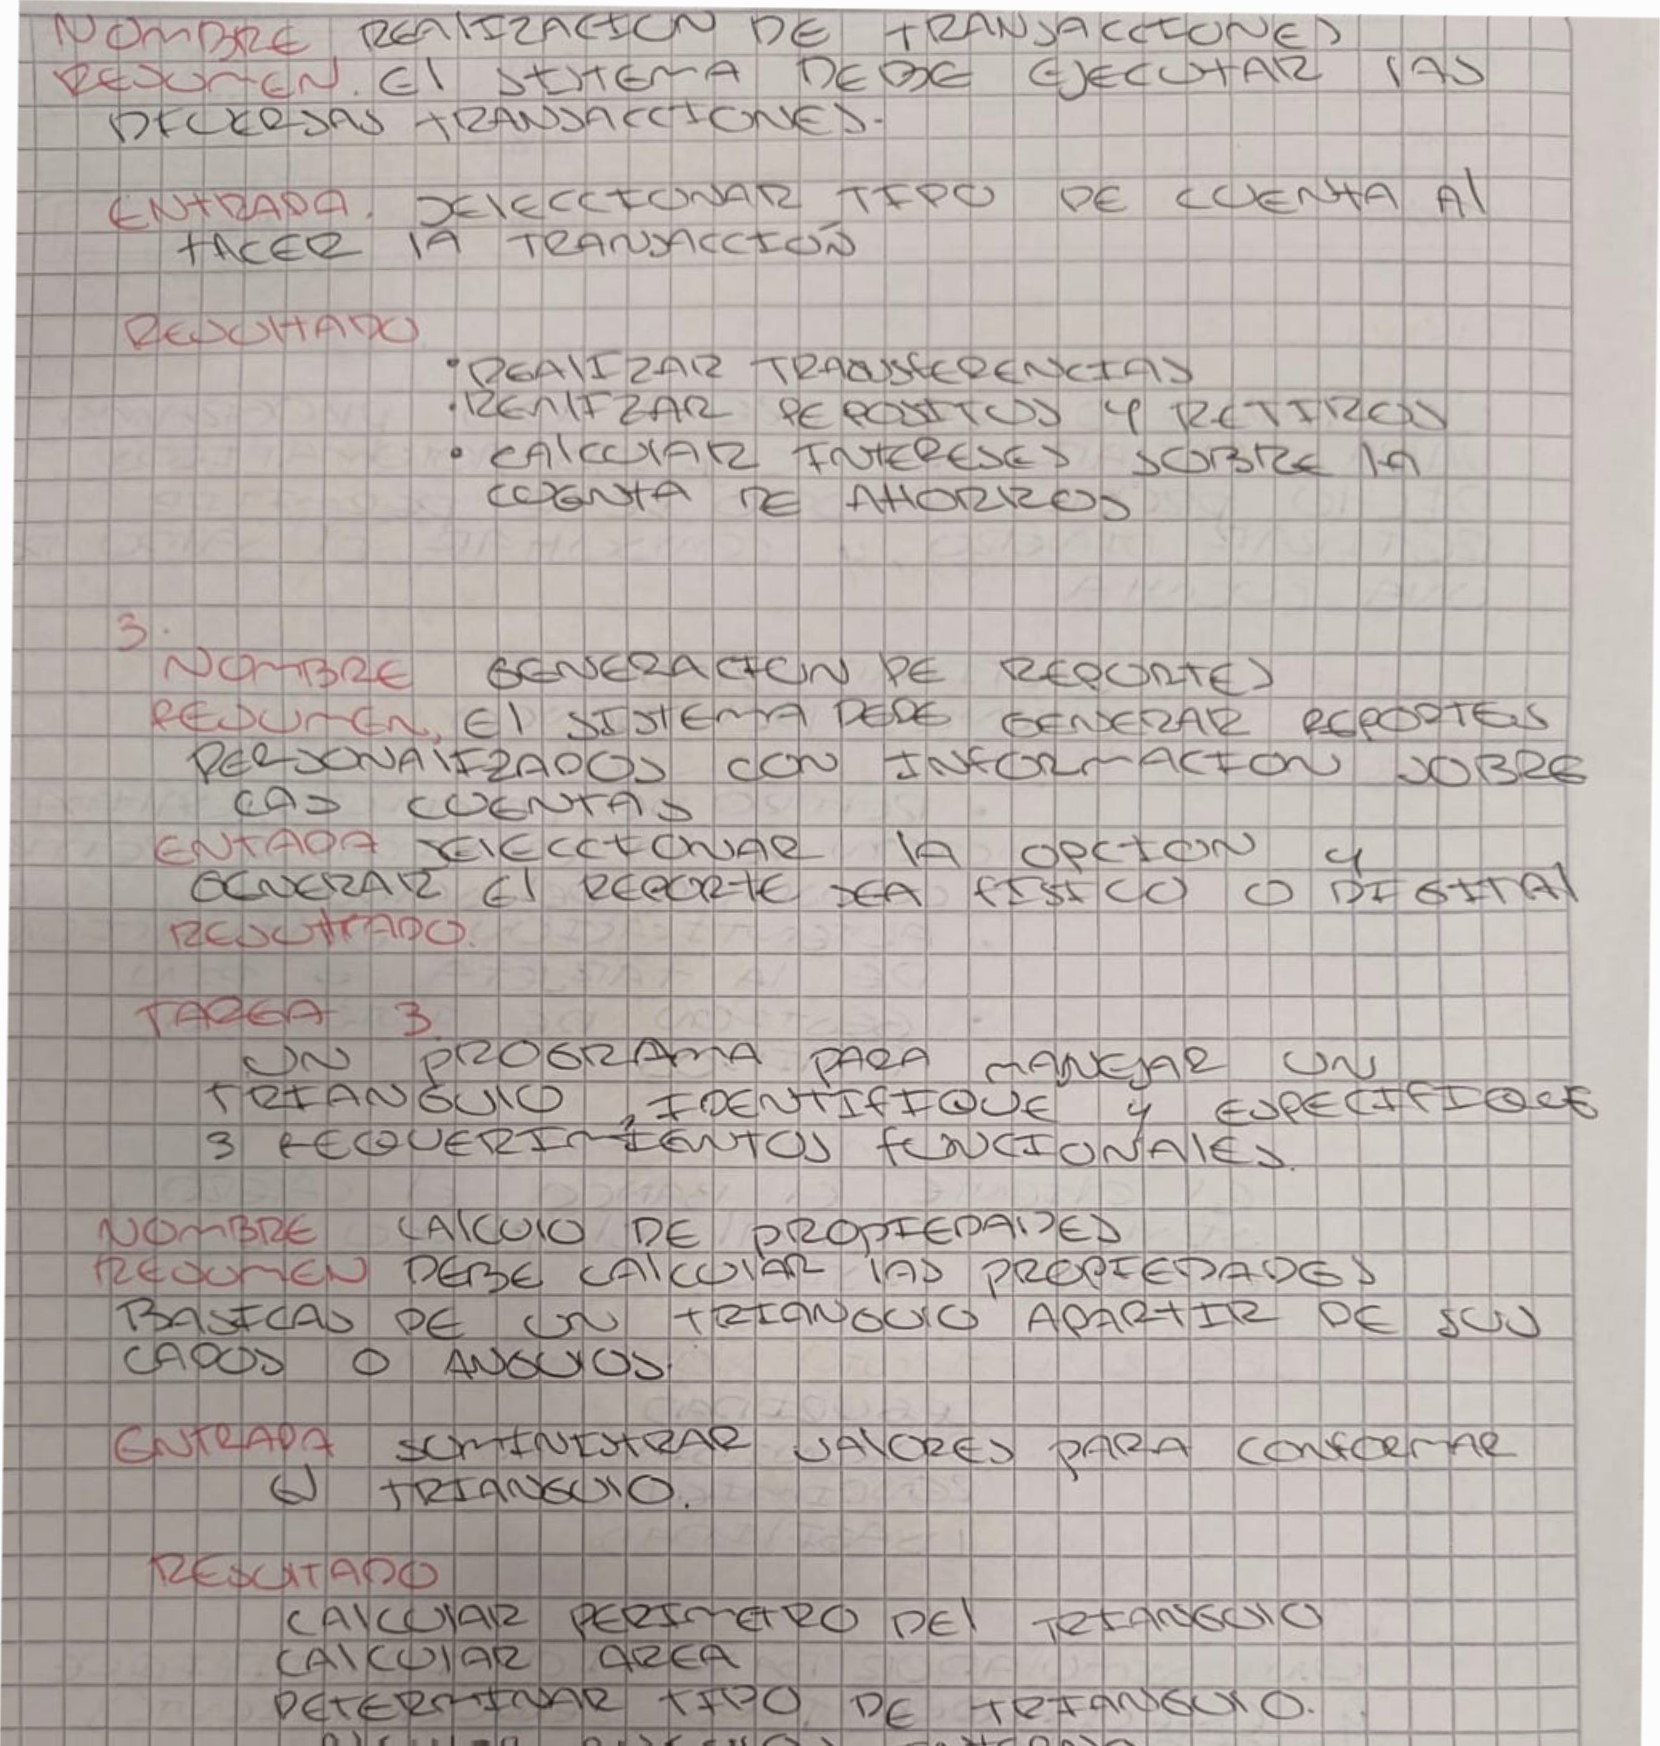 NOMBRE REALIZACION DE TRANSACCIONES
RESUMEN. El SISTEMA DEBE EJECUTAR LAS
DIVERSAS TRANSACCIONES.
ENTRADA. SELECCIONAR TIPO DE CUENTA Al
HACER LA TRANSACCION
RESULTADO
• REALIZAR TRANSFERENCIAS
• REALIZAR DEPOSITOS Y RETIROS
• CALCULAR INTERESES SOBRE LA
CUENTA DE AHORROS
3.
NOMBRE GENERACION DE REPORTES
RESUMEN, El SISTEMA DEBE GENERAR REPORTES
PERSONALIZADOS CON INFORMACION SOBRE
LAS CUENTAS
ENTADA SELECCIONAR LA OPCION Y
GENERAR El REPORTE SEA FISICO O DIGITAL
RESULTADO.
TAREA 3
UN PROGRAMA PARA MANEJAR UN
TRIANGULO, IDENTIFIQUE Y ESPECIFIQUE
3 REQUERIMIENTOS FUNCIONALES.
NOMBRE CALCULO DE PROPIEDADES
RESUMEN DEBE CALCULAR LAS PROPIEDADES
BASICAS DE UN TRIANGULO APARTIR DE SUS
LADOS O ANGULOS.
ENTRADA SUMINISTRAR VALORES PARA CONFORMAR
El TRIANGULO.
RESULTADO
CALCULAR PERIMETRO DEL TRIANGULO
CALCULAR AREA
DETERMINAR TIPO DE TRIANGULO.